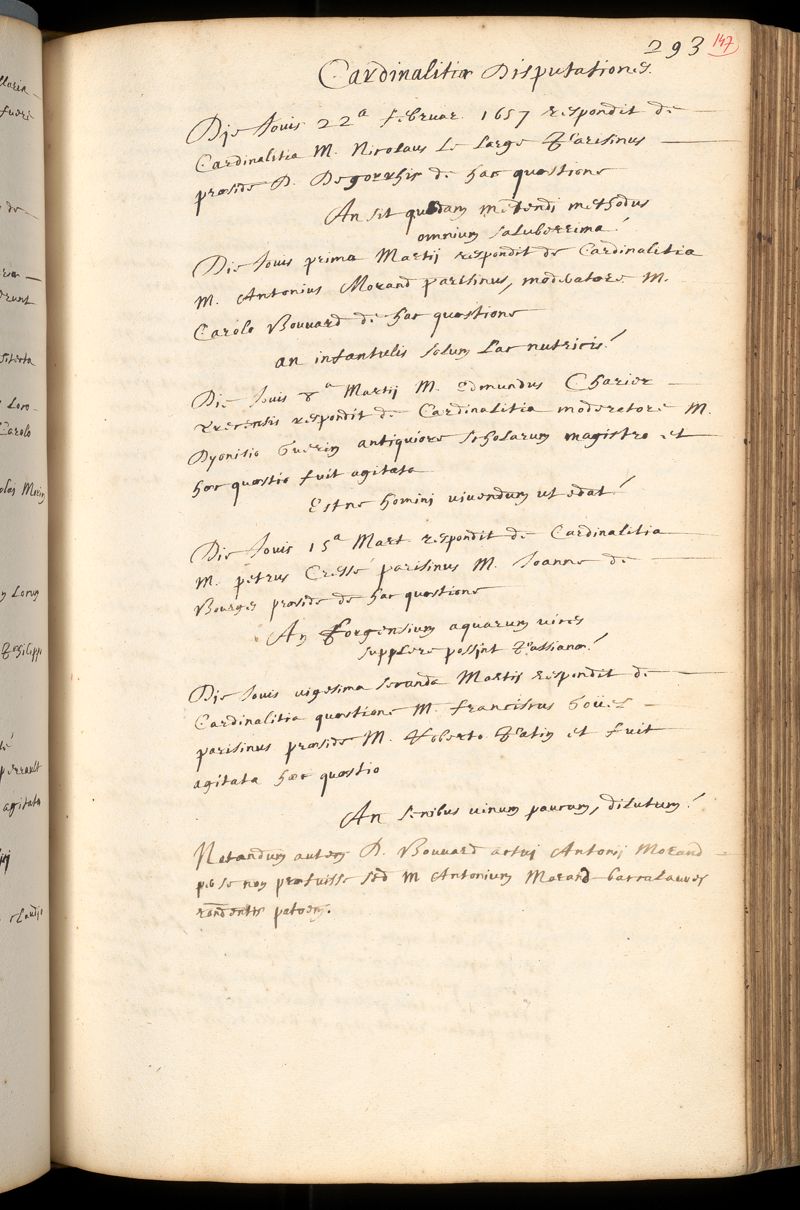 293 147
Cardinalitiæ Disputationes.
Die Jouis 22ª Februar. 1657 respondit de
Cardinalitia M. Nicolaus Le Large Parisinus
præside D. Degorrhis de hac quæstione
An sit quædam medendi methodus
omnium saluberrima?
Die Jouis prima Martij respondit de Cardinalitia
M. Antonius Morand parisinus, moderatore M.
Carolo Bouuard de hac quæstione
an infantulis solum Lac nutricis?
Die Jouis 8ª Martij M. Edmundus Charier
Trecensis respondit de Cardinalitia moderatore M.
Dyonisio Guerin antiquiore scholarum magistro et
hæc quæstio fuit agitata
Estne homini uiuendum ut edat?
Die Jouis 15ª Mart. respondit de Cardinalitia
M. petrus Cressé parisinus M. Joanne de
Bourges præside de hac quæstione
An Forgensium aquarum uires
supplere possint Passianæ?
Die Jouis uigesima secunda Martij respondit de
Cardinalitia quæstione M. Franciscus Goüel
parisinus præside M. Roberto Patin et fuit
agitata hæc quæstio
An senibus uinum paucum, dilutum?
Notandum autem D. Bouuard actuj Antonij Morand
per se non præfuisse sed M Antonium Morand baccalaurei
rondentis patrem.
Maria
fuere
de
erunt
Carolo
Philippi
perrault
agitata